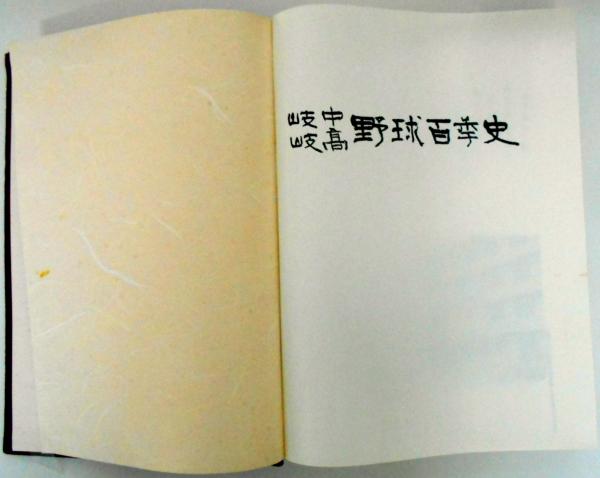 岐中
岐高
野球百年史